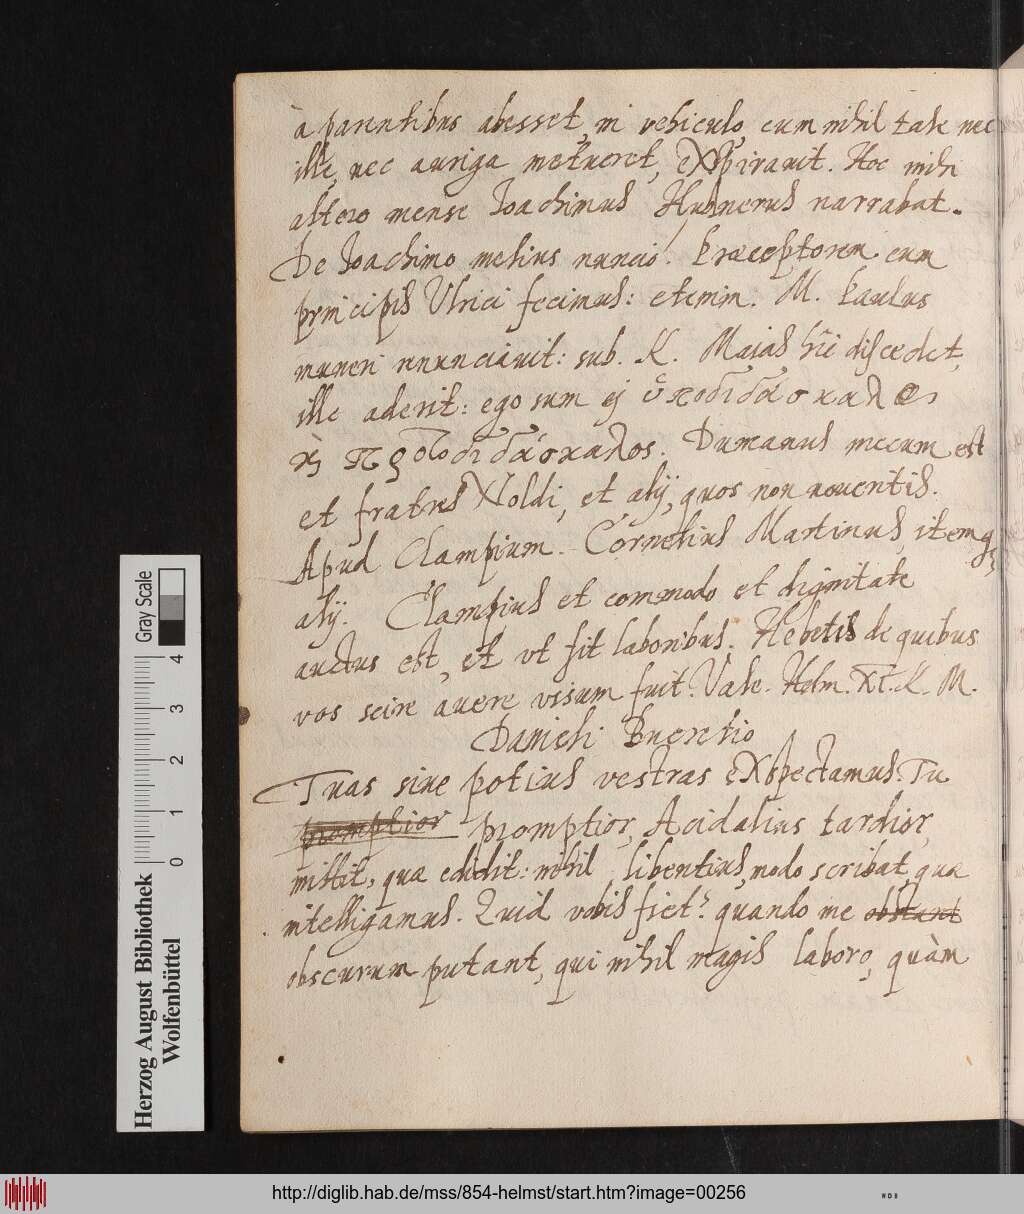 à parentibus abesset, in vehiculo, cum nihil tale nec
ille, nec auriga metueret, exspiravit. Hoc mihi
altero mense Joachimus Hubnerus narrabat.
De Joachimo melius nuncio! Praeceptorem eum
principis Ulrici fecimus: etenim. M. Paulus
muneri renunciavit: sub. K. Maias discedet,
ille aderit: ego sum ej ὑποδιδάσκαλος
ϗ προδιδάσκαλος. Dumanus mecum est
et fratres Noldi, et alij, quos non noveritis.
Apud Clampium. Cornelius Martinus, itemq
alij. Clampius et commodo et dignitate
auctus est, et ut fit laboribus. Hebetis de quibus
vos scire avere visum fuit. Vale. Helm. XI. K. M.
Danieli Bueretio
Tuas sive potius vestras exspectamus. Tu
promptior promptior, Acidalius tardior,
mittit, quae edidit: nihil libentius, modo scribat, quae
intelligamus. Quid vobis fiet? quando me obstant
obscurum putant, qui nihil magis laboro, quàm
Gray Scale
4
3
2
1
0
Herzog August Bibliothek
Wolfenbüttel
http://diglib.hab.de/mss/854-helmst/start.htm?image=00256